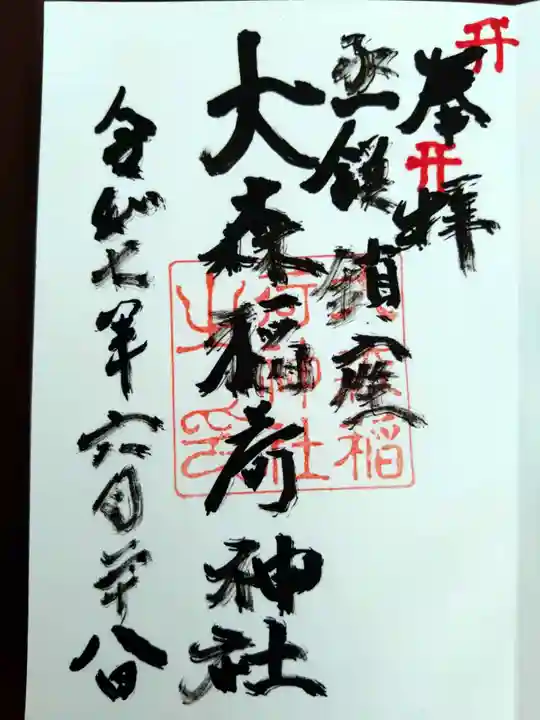 奉拝
函館鎮座
大森稲荷神社
令和七年六月廿八日
大森稲
荷神社
之印